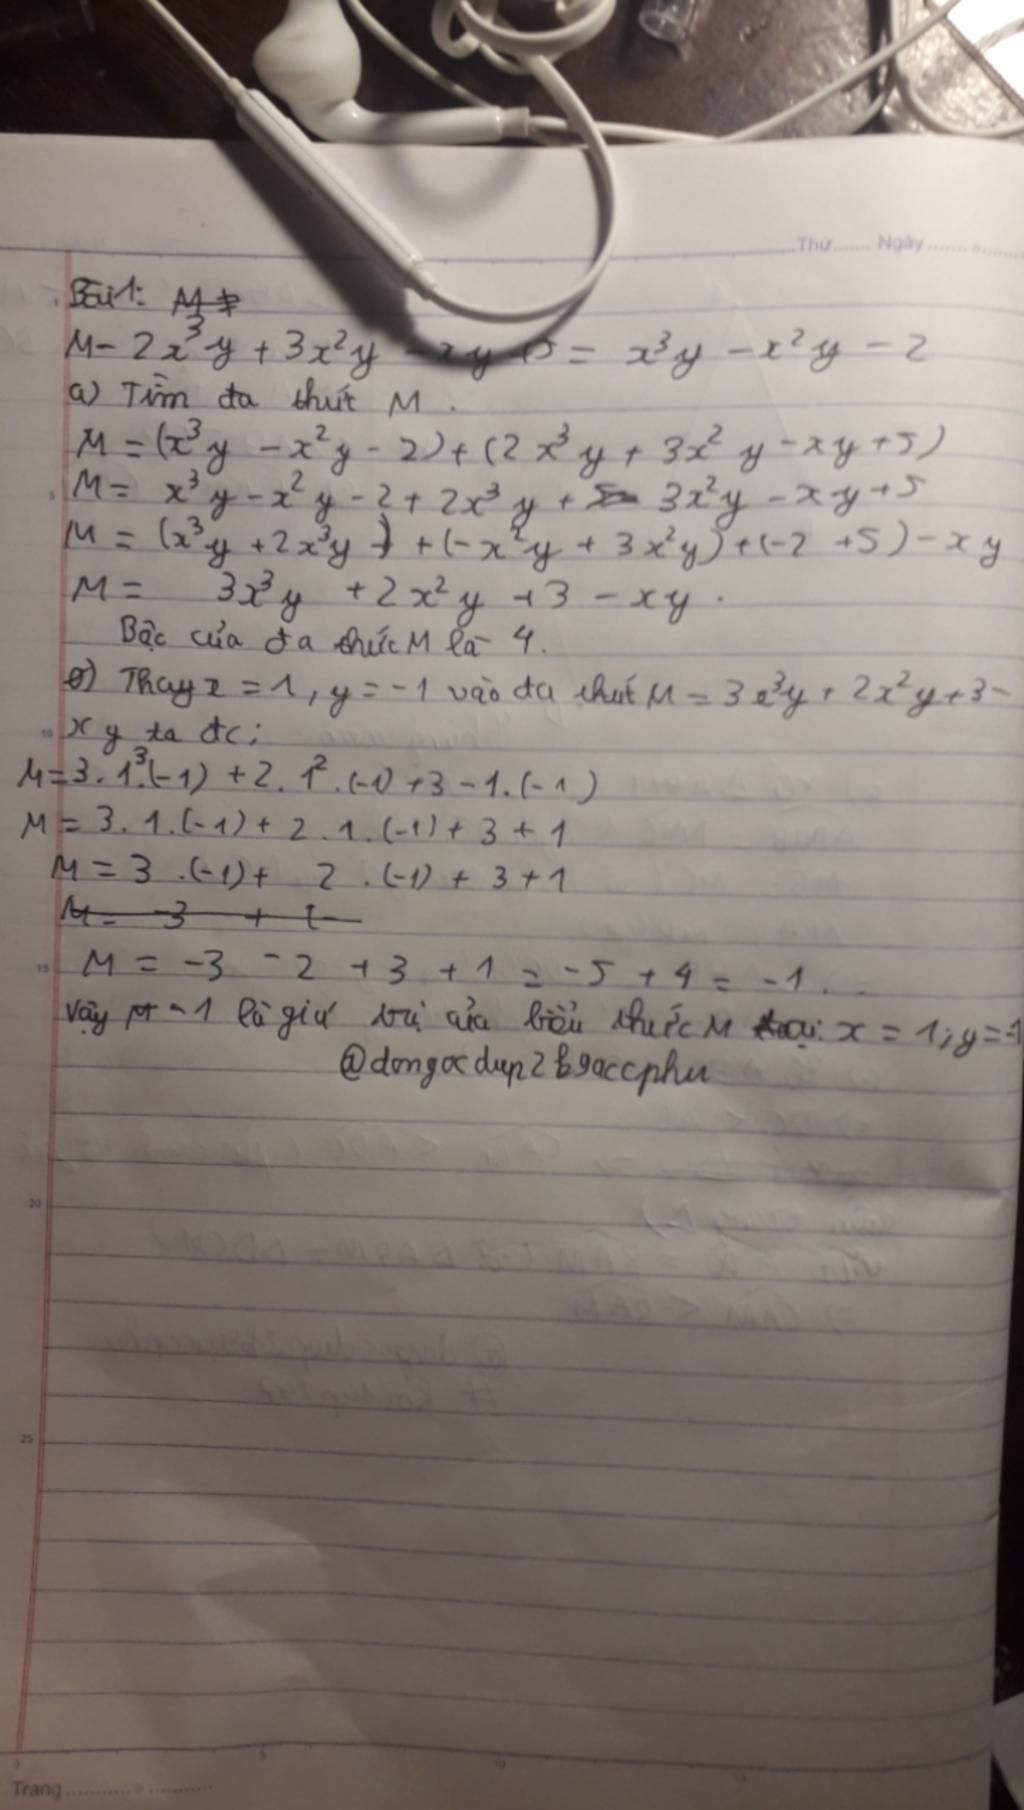 Thứ....... Ngày.......
Bài 1: M
M - 2x³y + 3x²y - xy + 5 = x³y - x²y - 2
a) Tìm đa thưt M.
M = (x³y - x²y - 2) + (2x³y + 3x²y - xy + 5)
M = x³y - x²y - 2 + 2x³y + 3x²y - xy + 5
M = (x³y + 2x³y) + (-x²y + 3x²y) + (-2 + 5) - xy
M = 3x³y + 2x²y + 3 - xy.
Bậc của đa thức M là 4.
Thay x = 1, y = -1 vào đa thưt M = 3x³y + 2x²y + 3 -
xy ta đc;
M = 3.1³.(-1) + 2.1².(-1) + 3 - 1.(-1)
M = 3.1.(-1) + 2.1.(-1) + 3 + 1
M = 3.(-1) + 2.(-1) + 3 + 1
M = -3 + (-
M = -3 - 2 + 3 + 1 = -5 + 4 = -1...
Vậy -1 là giá trị của biểu thức M tại x = 1; y = -1
@dongocdup2b9accphu
Trang